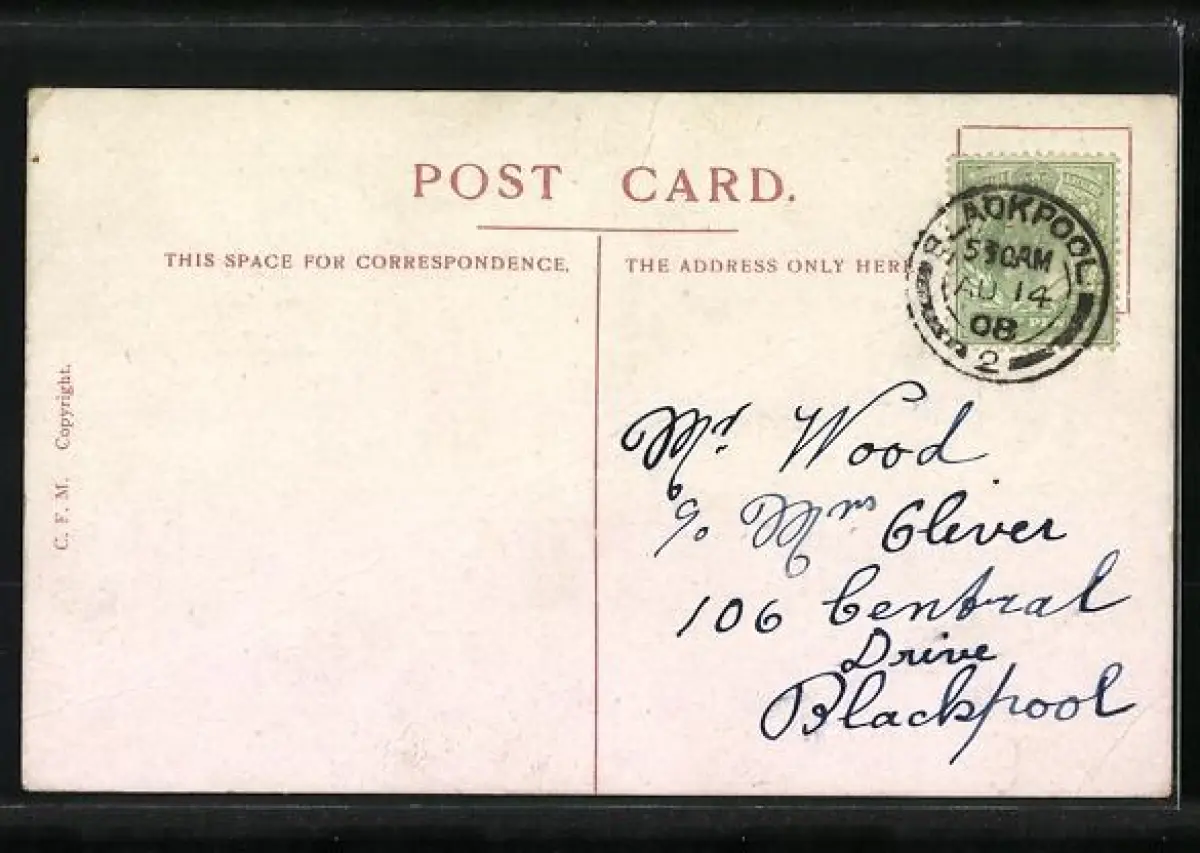 POST CARD.
THIS SPACE FOR CORRESPONDENCE.
THE ADDRESS ONLY HERE
BLACKPOOL
5 30AM
AU 14
08
2
Mr. Wood
c/o Mrs Clever
106 Central
Drive
Blackpool
C. F. M. Copyright.